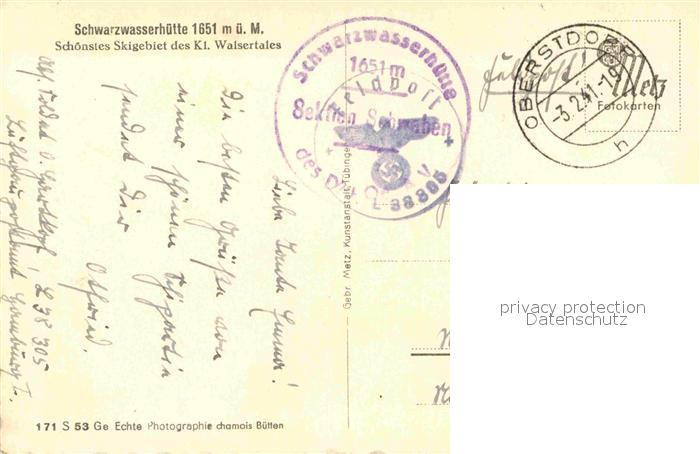 Schwarzwasserhütte 1651 m ü. M.
Schönstes Skigebiet des Kl. Walsertales
Schwarzwasserhütte
1651 m
Feldpost
Sektion Schwaben
des
L 38305
Feldpost!
OBERSTDORF
-3.2.41.-19
h
Metz
Fotokarten
Liebe Tante Emma!
Die besten Grüße von
einer schönen
sendet Dir
Othwid.
Abs. Soldat O.
L 38 305
Luftgaupostamt Hamburg I.
Gebr. Metz, Kunstanstalt, Tübingen
171 S 53 Ge Echte Photographie chamois Bütten
privacy protection
Datenschutz